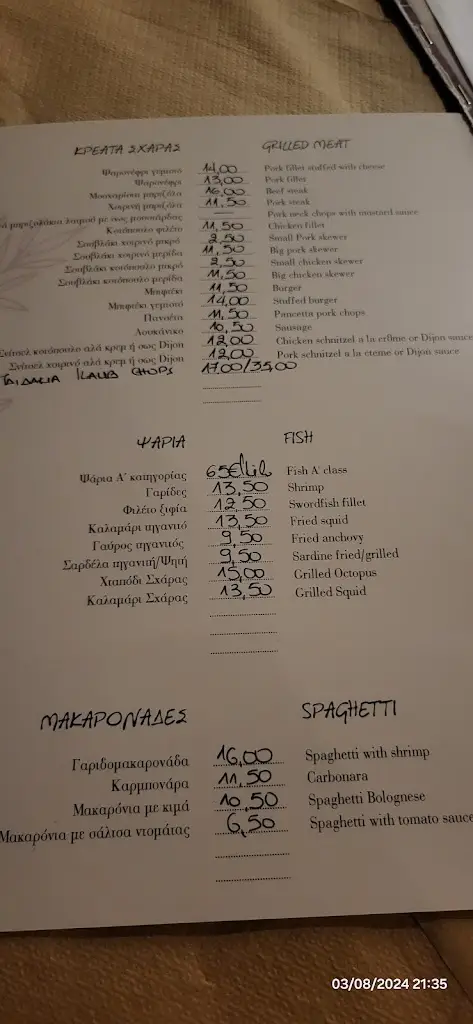 ΚΡΕΑΤΑ ΣΧΑΡΑΣ GRILLED MEAT
Ψαρονέφρι γεμιστό 14,00 Pork fillet stuffed with cheese
Ψαρονέφρι 13,00 Pork fillet
Μοσχαρίσια μπριζόλα 16,00 Beef steak
Χοιρινή μπριζόλα 11,50 Pork steak
μπριζολάκια λαιμού με σως μουστάρδας — Pork neck chops with mustard sauce
Κοτόπουλο φιλέτο 11,50 Chicken fillet
Σουβλάκι χοιρινό μικρό 2,50 Small Pork skewer
Σουβλάκι χοιρινό μερίδα 11,50 Big pork skewer
Σουβλάκι κοτόπουλο μικρό 2,50 Small chicken skewer
Σουβλάκι κοτόπουλο μερίδα 11,50 Big chicken skewer
Μπιφτέκι 11,50 Burger
Μπιφτέκι γεμιστό 14,00 Stuffed burger
Πανσέτα 11,50 Pancetta pork chops
Λουκάνικο 10,50 Sausage
Σνίτσελ κοτόπουλο αλά κρεμ ή σως Dijon 12,00 Chicken schnitzel a la crème or Dijon sauce
Σνίτσελ χοιρινό αλά κρεμ ή σως Dijon 12,00 Pork schnitzel a la creme or Dijon sauce
ΠΑΙΔΑΚΙΑ /LAMB CHOPS 17.00/35,00
ΨΑΡΙΑ FISH
Ψάρια Α' κατηγορίας 65€/kil Fish A' class
Γαρίδες 13,50 Shrimp
Φιλέτο ξιφία 12,50 Swordfish fillet
Καλαμάρι τηγανιτό 13,50 Fried squid
Γαύρος τηγανιτός 9,50 Fried anchovy
Σαρδέλα τηγανιτή/Ψητή 9,50 Sardine fried/grilled
Χταπόδι Σχάρας 15,00 Grilled Octopus
Καλαμάρι Σχάρας 13,50 Grilled Squid
ΜΑΚΑΡΟΝΑΔΕΣ SPAGHETTI
Γαριδομακαρονάδα 16,00 Spaghetti with shrimp
Καρμπονάρα 11,50 Carbonara
Μακαρόνια με κιμά 10,50 Spaghetti Bolognese
Μακαρόνια με σάλτσα ντομάτας 6,50 Spaghetti with tomato sauce
03/08/2024 21:35